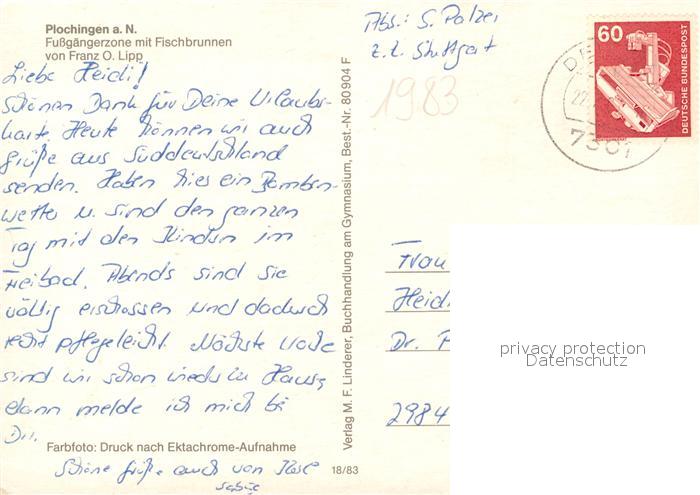 Plochingen a. N.
Fußgängerzone mit Fischbrunnen
von Franz O. Lipp
Liebe Heidi!
schönen Dank für Deine Urlaubs-
karte. Heute können wir auch
Grüße aus Süddeutschland
senden. Haben hier ein Bomben-
wetter u. sind den ganzen
Tag mit den Kindern im
Freibad. Abends sind sie
völlig erschossen und dadurch
recht pflegeleicht. Nächste Woche
sind wir schon wieder zu Hause,
dann melde ich mich bei
Dir.
Farbfoto: Druck nach Ektachrome-Aufnahme
Schöne Grüße auch von
Verlag M. F. Linderer, Buchhandlung am Gymnasium, Best.-Nr. 80 904 F
18/83
Abs.: S. Polzei
z. Z. Stuttgart
1983
60
DEUTSCHE BUNDESPOST
7301
Frau
Heidi
Dr. P
2984
privacy protection
Datenschutz